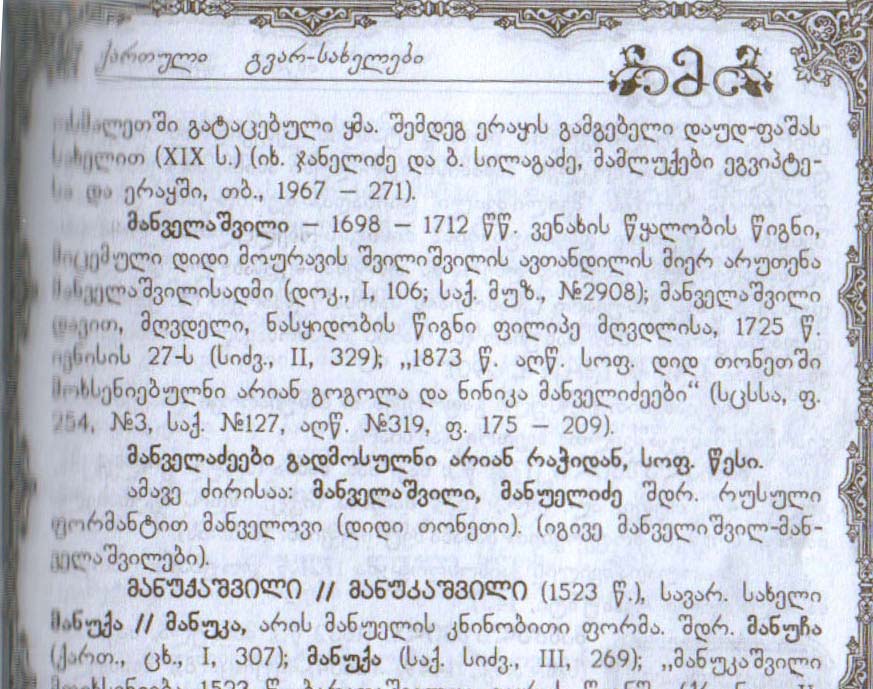 ქართული გვარ-სახელები
მ
ოსმალეთში გატაცებული ყმა. შემდეგ ერაყის გამგებელი დაუდ-ფაშას
სახელით (XIX ს.) (იხ. ჯანელიძე და ბ. სილაგაძე, მამლუქები ეგვიპტე-
სა და ერაყში, თბ., 1967 – 271).
მანველაშვილი – 1698 – 1712 წწ. ვენახის წყალობის წიგნი,
მიცემული დიდი მოურავის შვილიშვილის ავთანდილის მიერ არუთენა
მანველაშვილისადმი (დოკ., I, 106; საქ. მუზ., №2908); მანველაშვილი
დავით, მღვდელი, ნასყიდობის წიგნი ფილიპე მღვდლისა, 1725 წ.
ივნისის 27-ს (სიძვ., II, 329); „1873 წ. აღწ. სოფ. დიდ თონეთში
მოხსენიებულნი არიან გოგოლა და ნინიკა მანველიძეები“ (სცსსა, ფ.
254, №3, საქ. №127, აღწ. №319, ფ. 175 – 209).
მანველაძეები გადმოსულნი არიან რაჭიდან, სოფ. წესი.
ამავე ძირისაა: მანველაშვილი, მანუელიძე შდრ. რუსული
ფორმანტით მანველოვი (დიდი თონეთი). (იგივე მანველიშვილ-მან-
ველაშვილები).
მანუქაშვილი // მანუკაშვილი (1523 წ.), სავარ. სახელი
მანუქა // მანუკა, არის მანუელის კნინობითი ფორმა. შდრ. მანუჩა
(ქართ., ცხ., I, 307); მანუქა (საქ. სიძვ., III, 269); „მანუკაშვილი
მოიხსენება 1523 წ.